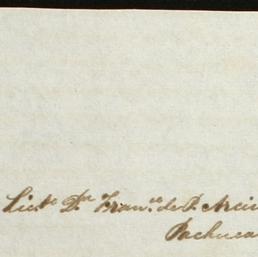 Licdo Dn Franco de P. Arci
Pachuca